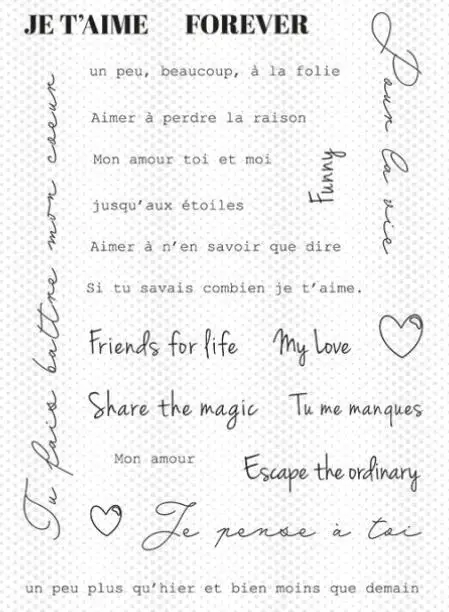 JE T'AIME FOREVER
Pour la vie
un peu, beaucoup, à la folie
Aimer à perdre la raison
Mon amour toi et moi
Funny
jusqu'aux étoiles
Aimer à n'en savoir que dire
Si tu savais combien je t'aime.
Tu fais battre mon coeur
Friends for life
My Love
Share the magic
Tu me manques
Mon amour
Escape the ordinary
Je pense à toi
un peu plus qu'hier et bien moins que demain